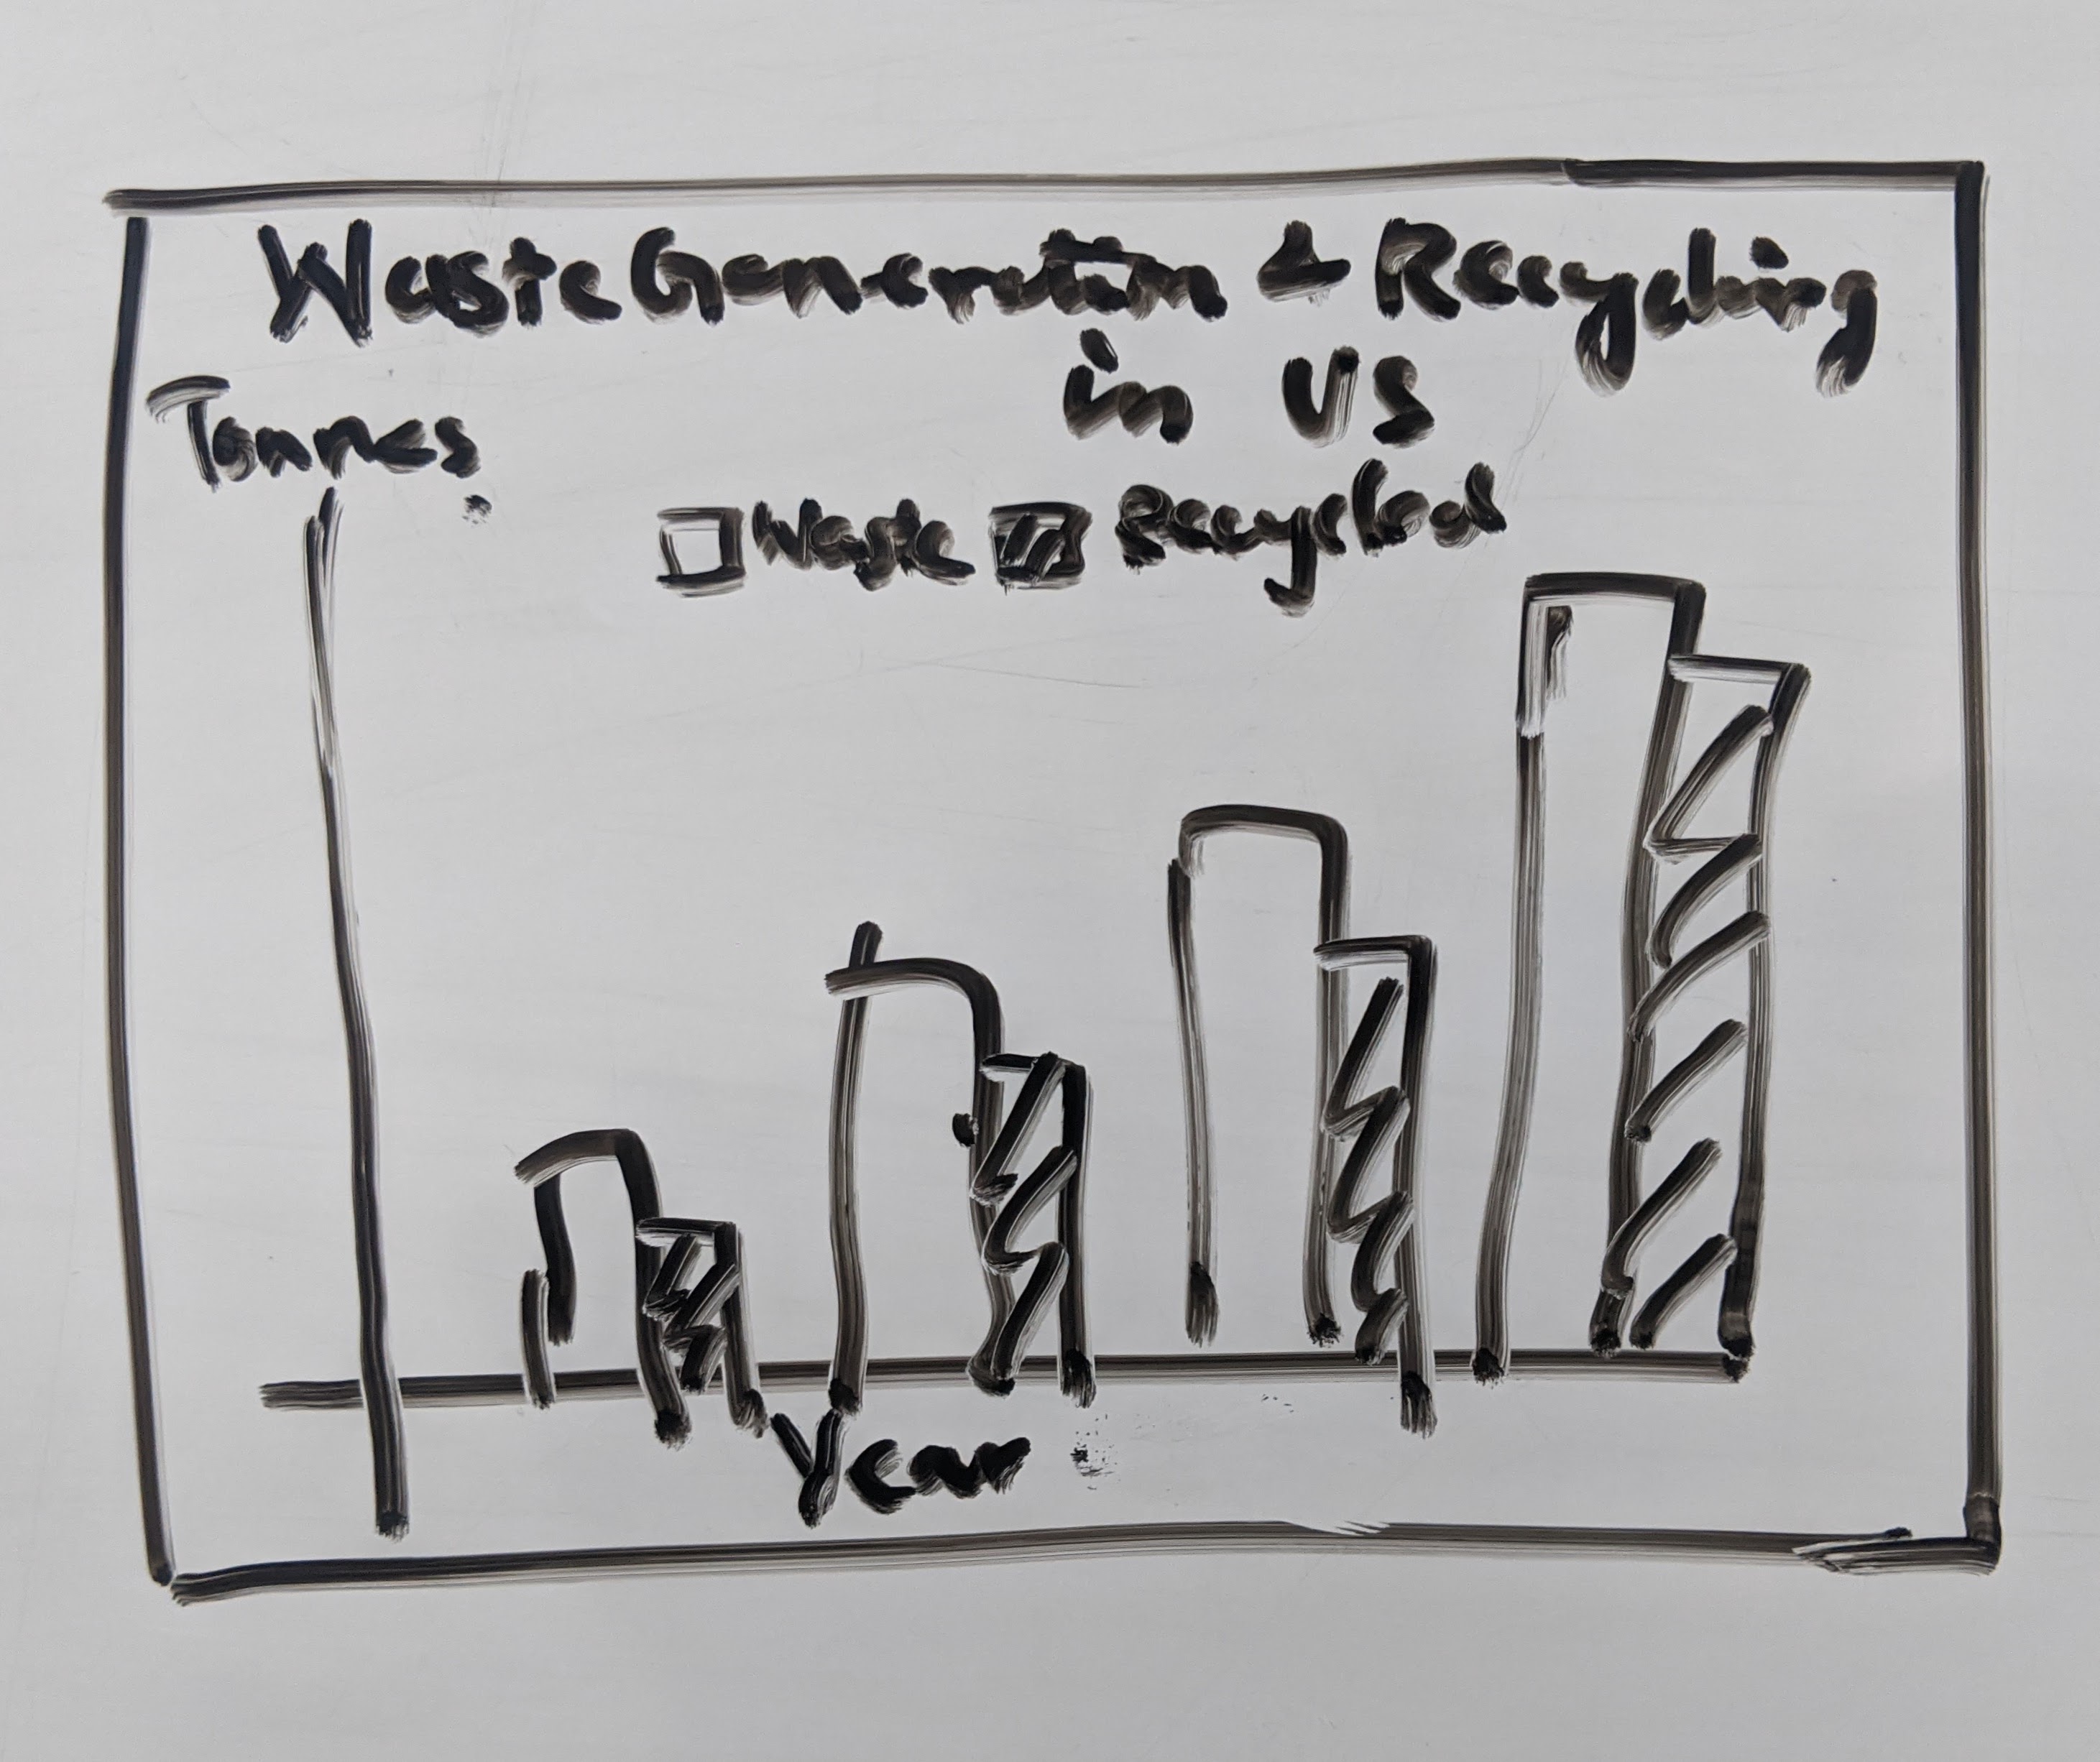 Waste Generation & Recycling
in US
Tonnes
Waste Recycled
Year